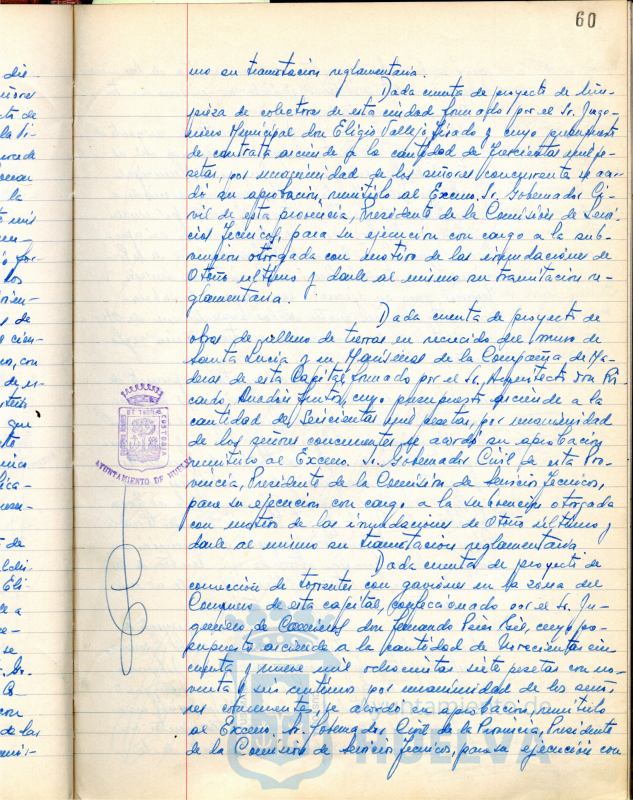 60
mo su tramitación reglamentaria.
Dada cuenta de proyecto de lim-
pieza de colectores de esta ciudad formado por el Sr. Inge-
niero Municipal don Eligio Vallejo y cuyo presupuesto
de contrata asciende a la cantidad de trescientas mil pe-
setas, por unanimidad de los señores concurrentes se acor-
dó su aprobación, remitirlo al Excmo. Sr. Gobernador Ci-
vil de esta provincia, Presidente de la Comisión de Servi-
cios Técnicos, para su ejecución con cargo a la sub-
vención otorgada con motivo de las inundaciones de
Otoño último y darle al mismo su tramitación re-
glamentaria.
Dada cuenta de proyecto de
obras de relleno de tierras en recrecido del muro de
Santa Lucia y en Marismas de la Compañía de Ma-
deras de esta Capital, formado por el Sr. Arquitecto don Ri-
cardo Anadón cuyo presupuesto asciende a la
cantidad de Seiscientas mil pesetas, por unanimidad
de los señores concurrentes, se acordó su aprobación
remitirlo al Excmo. Sr. Gobernador Civil de esta Pro-
vincia, Presidente de la Comisión de Servicios Técnicos,
para su ejecución con cargo a la subvención otorgada
con motivo de las inundaciones de Otoño último y
darle al mismo su tramitación reglamentaria
Dada cuenta de proyecto de
corrección de torrentes con gaviones en la zona del
Conquero de esta capital, confeccionado por el Sr. In-
geniero de Caminos don Fernando cuyo pre-
supuesto asciende a la cantidad de Novecientas cin-
cuenta y nueve mil ochocientas siete pesetas con no-
venta y seis centimos por unanimidad de los seño-
res concurrentes, se acordó su aprobación, remitirlo
al Excmo. Sr. Gobernador Civil de la Provincia, Presidente
de la Comisión de Servicios Técnicos, para su ejecución con
AYUNTAMIENTO DE HUELVA
Ayuntamiento de
HUELVA